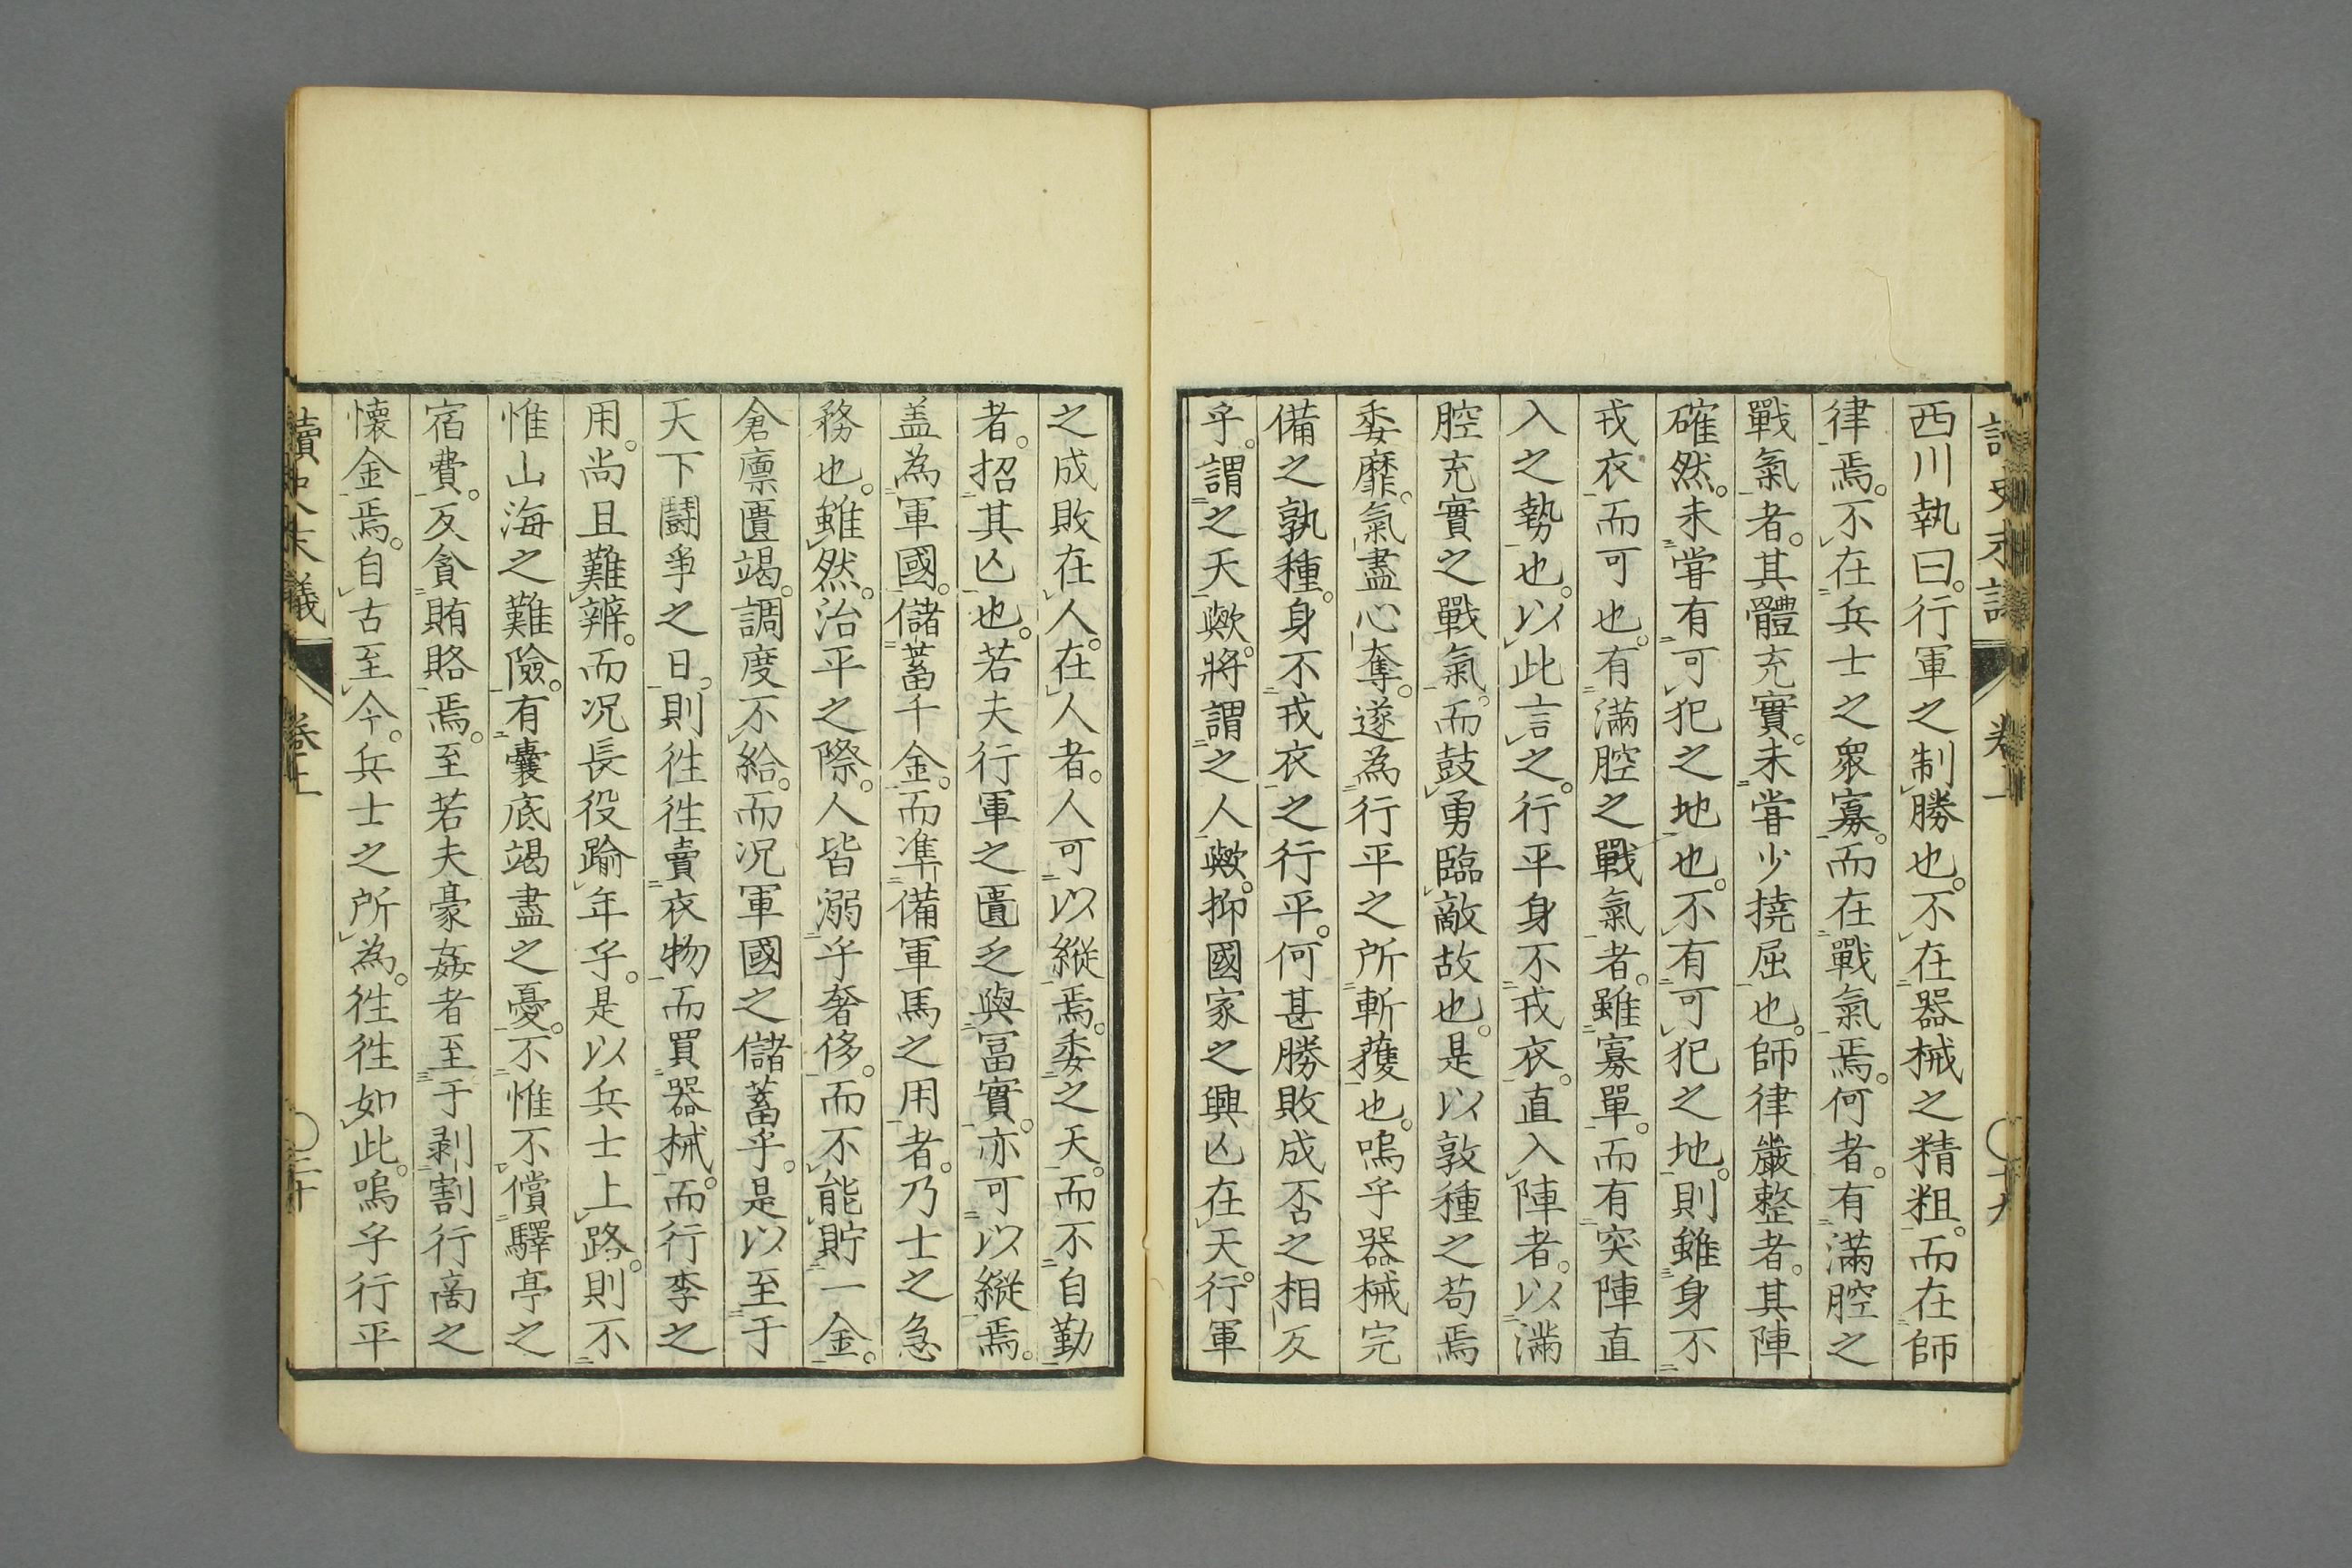 西川執曰。行軍之制勝也。不在器械之精粗。而在師
律焉。不在兵士之衆寡。而在戰氣焉。何者。有滿腔之
戰氣者。其體充實。未嘗少撓屈也。師律嚴整者。其陣
確然。未嘗有可犯之地也。不有可犯之地。則雖身不
戎衣而可也。有滿腔之戰氣者。雖寡單。而有突陣直
入之勢也。以此言之。行平身不戎衣。直入陣者。以滿
腔充實之戰氣。而鼓勇臨敵故也。是以敦種之苟焉
委靡。氣盡心奪。遂為行平之所斬獲也。嗚乎器械完
備之孰種。身不戎衣之行平。何甚勝敗成否之相反
乎。謂之天歟。將謂之人歟。抑國家之興亾在天。行軍
之成敗在人。在人者。人可以縱焉。委之天。而不自勤
者。招其亾也。若夫行軍之匱乏與冨實。亦可以縱焉。
盖為軍國。儲蓄千金。而準備軍馬之用者。乃士之急
務也。雖然。治平之際。人皆溺乎奢侈。而不能貯一金。
倉廪匱竭。調度不給。而况軍國之儲蓄乎。是以至于
天下鬪爭之日。則徃徃賣衣物而買器械。而行李之
用。尚且難辨。而况長役踰年乎。是以兵士上路。則不
惟山海之難險。有囊底竭盡之憂。不惟不償驛亭之
宿費。反貪賄賂焉。至若夫豪姦者至于剥割行啇之
懐金焉。自古至今。兵士之所為。徃徃如此。嗚乎行平
讀史末議
卷上
三十